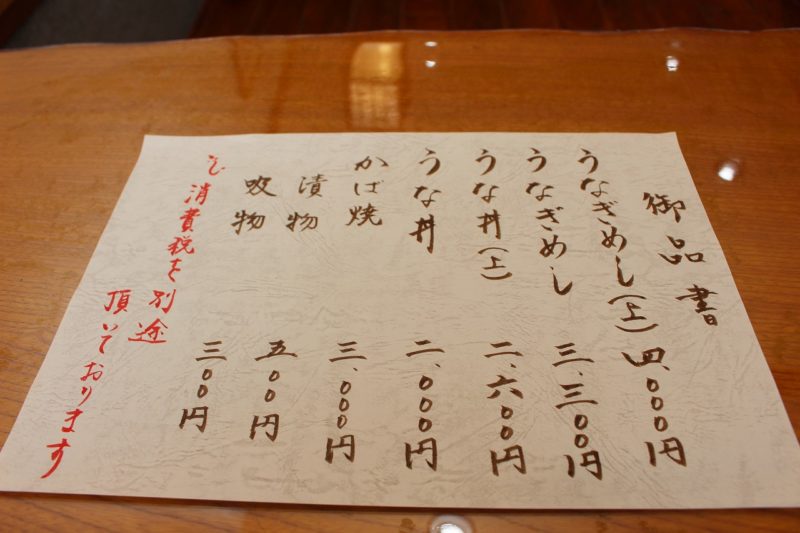 御品書
うなぎめし(上) 四、〇〇〇円
うなぎめし 三、三〇〇円
うな丼(上) 二、六〇〇円
うな丼 二、〇〇〇円
かば焼 三、〇〇〇円
漬物 五〇〇円
吸物 三〇〇円
消費税を別途
頂いております